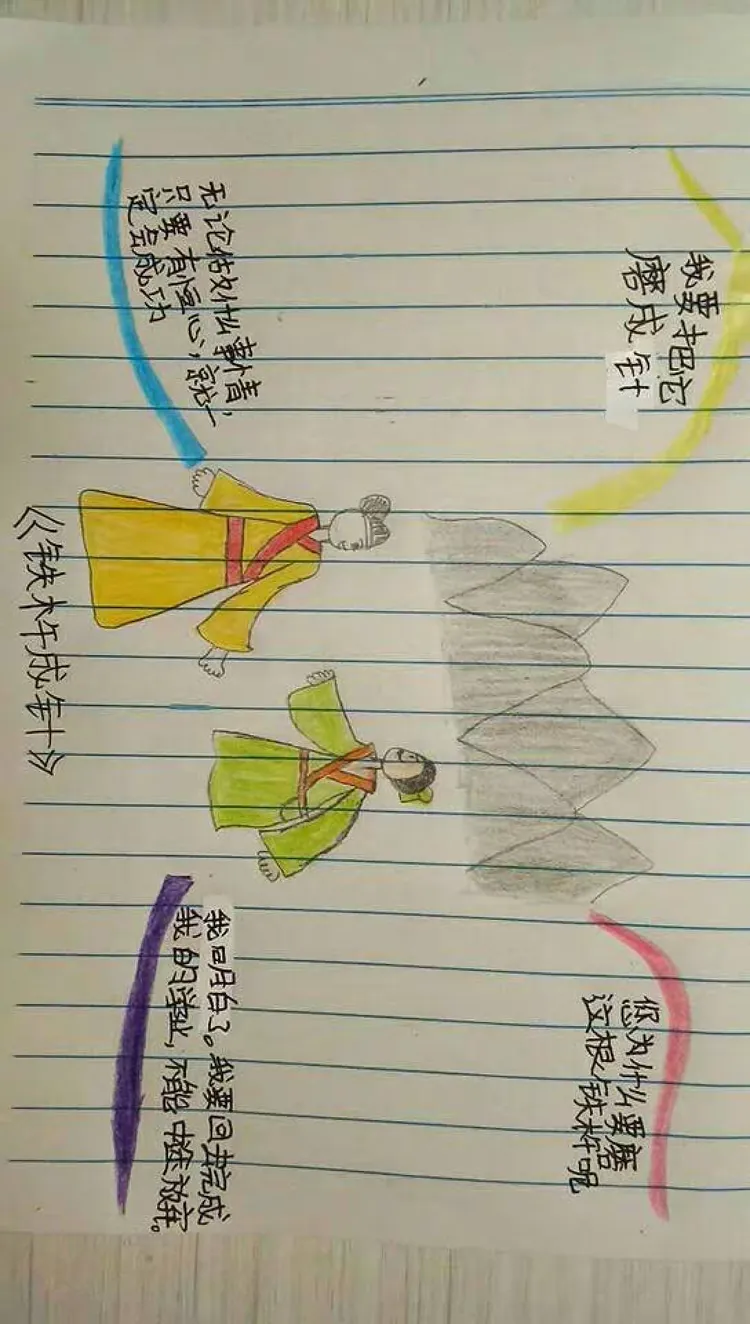 我要把它
磨成针
您为什么要磨
这根铁杵呢
无论做什么事情，
只要有恒心，就一
定会成功
我明白了。我要回去完成
我的学业，不能中途放弃。
《铁杵成针》